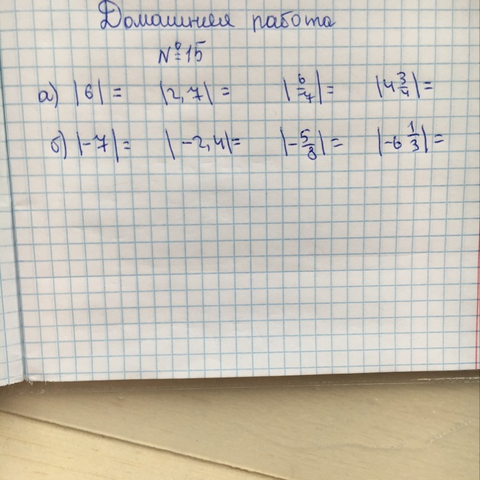 Домашняя работа
№15
а) |6|= |2,7|= |6/7|= |4 3/4|=
б) |-7|= |-2,4|= |-5/8|= |-6 1/3|=